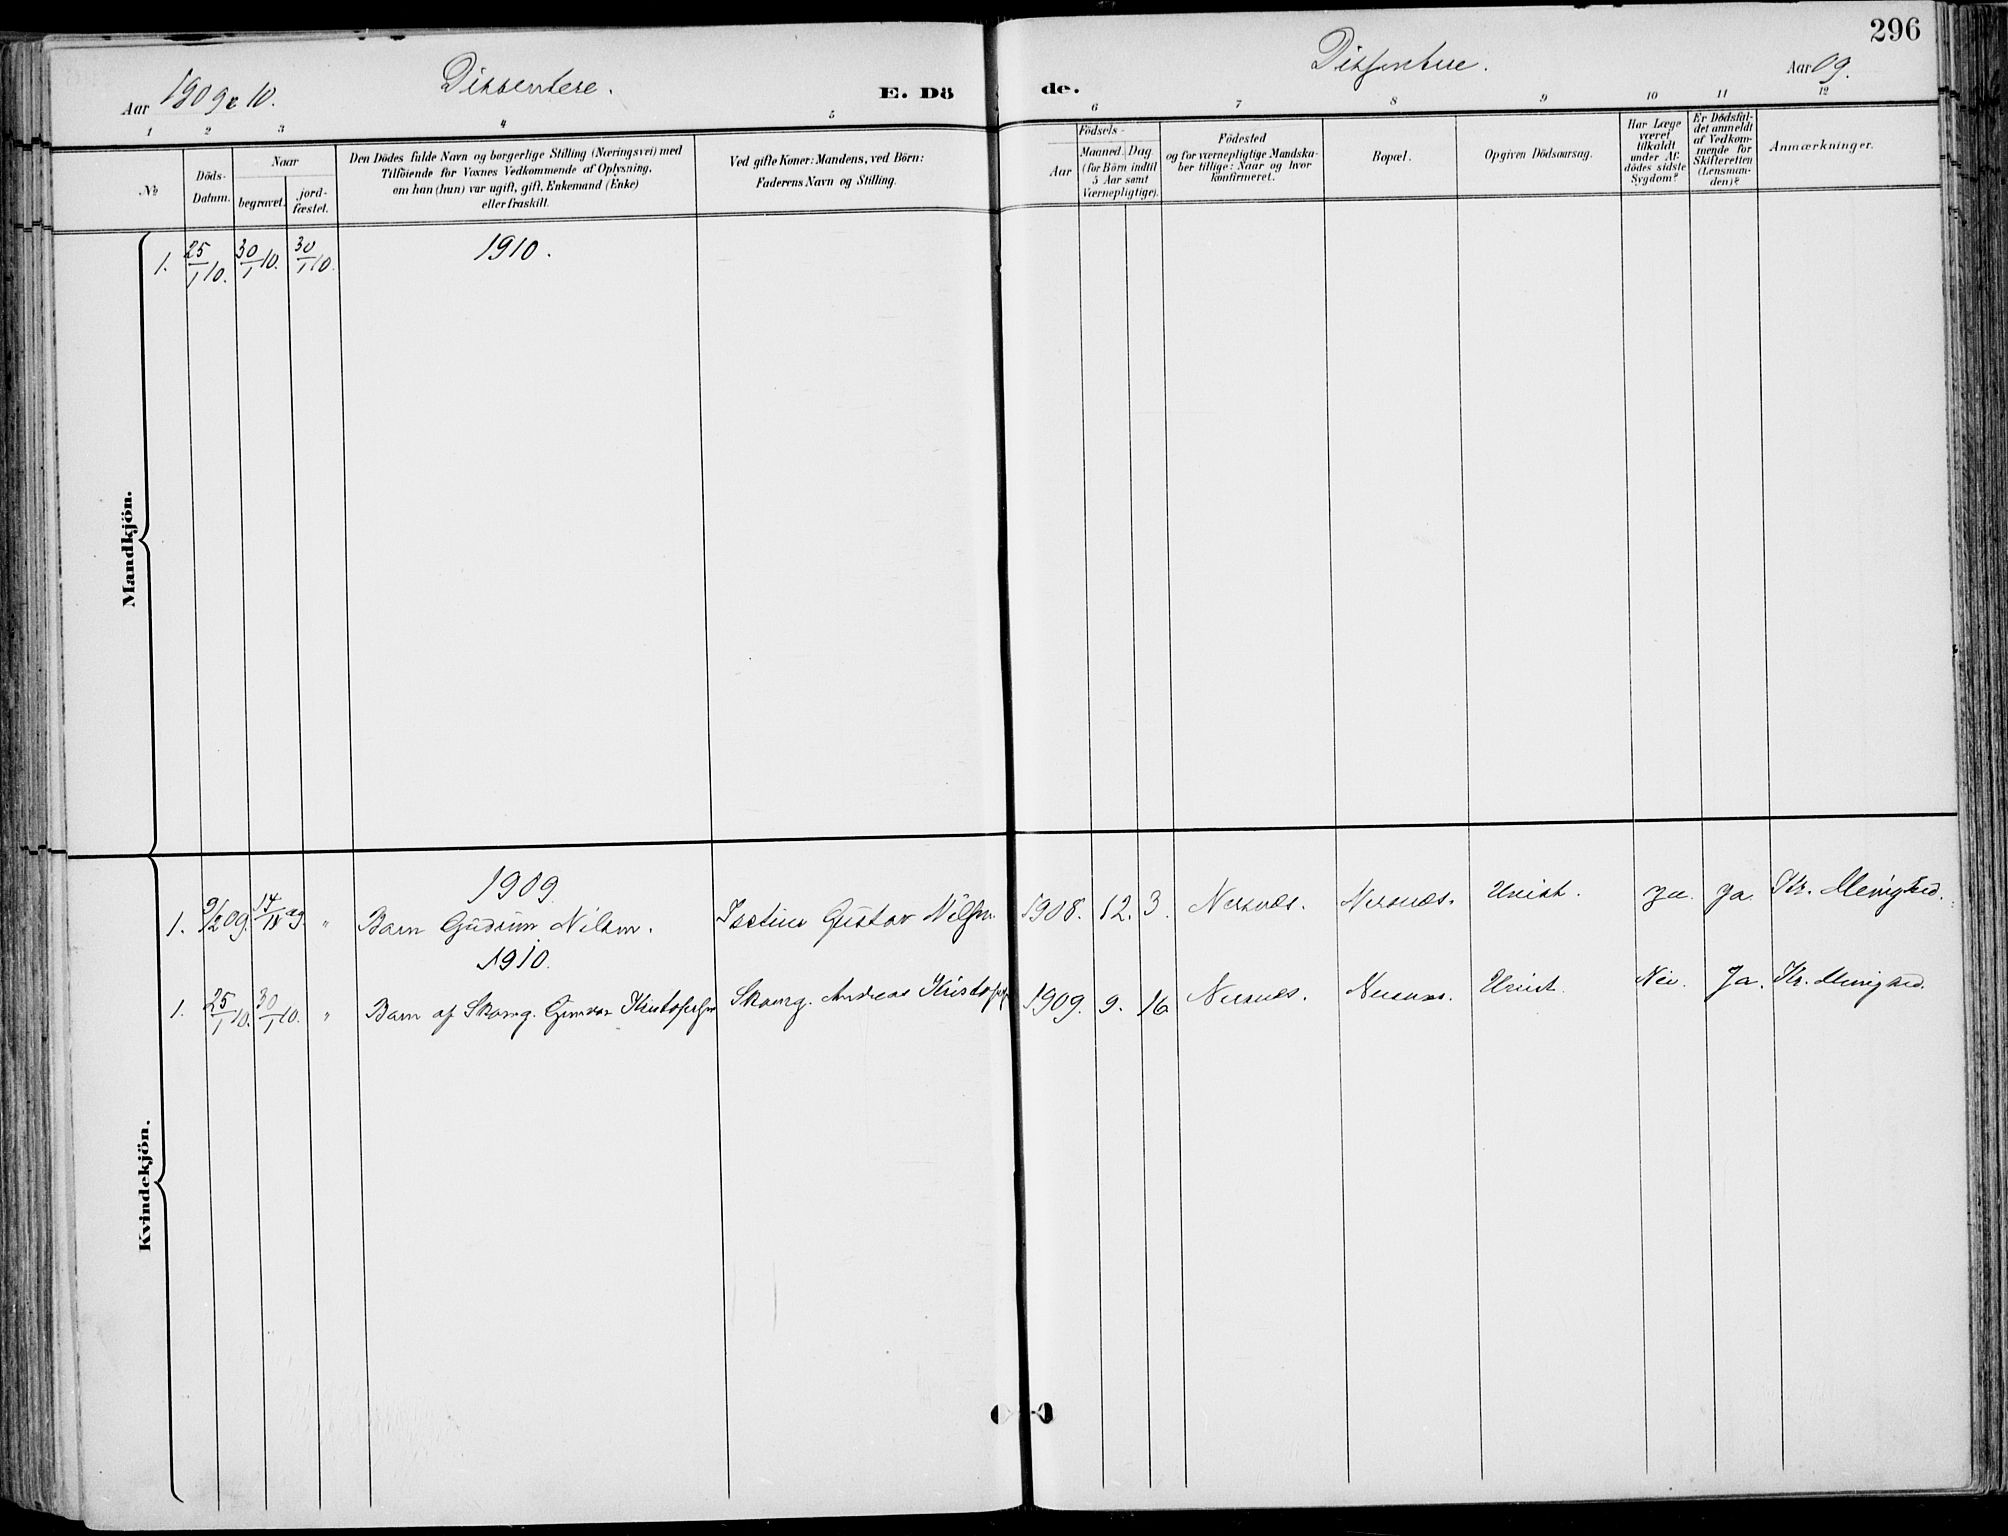 296
Aar 1909 & 10.
Dissentere.
E. Dö
de.
Dissentere.
Aar 09.
1 2 3 4 5 6 7 8 9 10 11 12
No
Döds-
Datum.
Naar
begravet.
jord-
fæstet.
Den Dödes fulde Navn og borgerlige Stilling (Næringsvei) med
Tilföiende for Voxnes Vedkommende af Oplysning,
om han (hun) var ugift, gift, Enkemand (Enke)
eller fraskilt.
Ved gifte Koner: Mandens, ved Börn:
Faderens Navn og Stilling.
Födsels-
Aar
Maaned. Dag
(for Börn indtil
5 Aar samt
Værnepligtige).
Födested
og for værnepligtige Mandska-
ber tillige: Naar og hvor
konfirmeret.
Bopæl.
Opgiven Dödsaarsag.
Har Læge
været
tilkaldt
under Af-
dödes sidste
Sygdom?
Er Dödsfal-
det anmeldt
af Vedkom-
mende for
Skifteretten
(Lensman-
den)?
Anmærkninger.
Mandkjön.
1. 25/1 10. 30/1 10. 30/1 10. 1910.
Kvindekjön.
1909.
1. 9/12 09. 14/12 09. " Barn Gudrun Nilsen. Gustav Nilsen 1908. 12. 3. Nersnes. Nersnes. Uvist. ja. ja. Kr. Menighed.
1910.
1. 25/1 10. 30/1 10. " Barn af Skomg. Gunvor Kristofersen Skomg. Andreas Kristofersen 1909. 9. 16 Nersnes. Nersnes. Uvist. Nei. Ja. Kr. Menighed.